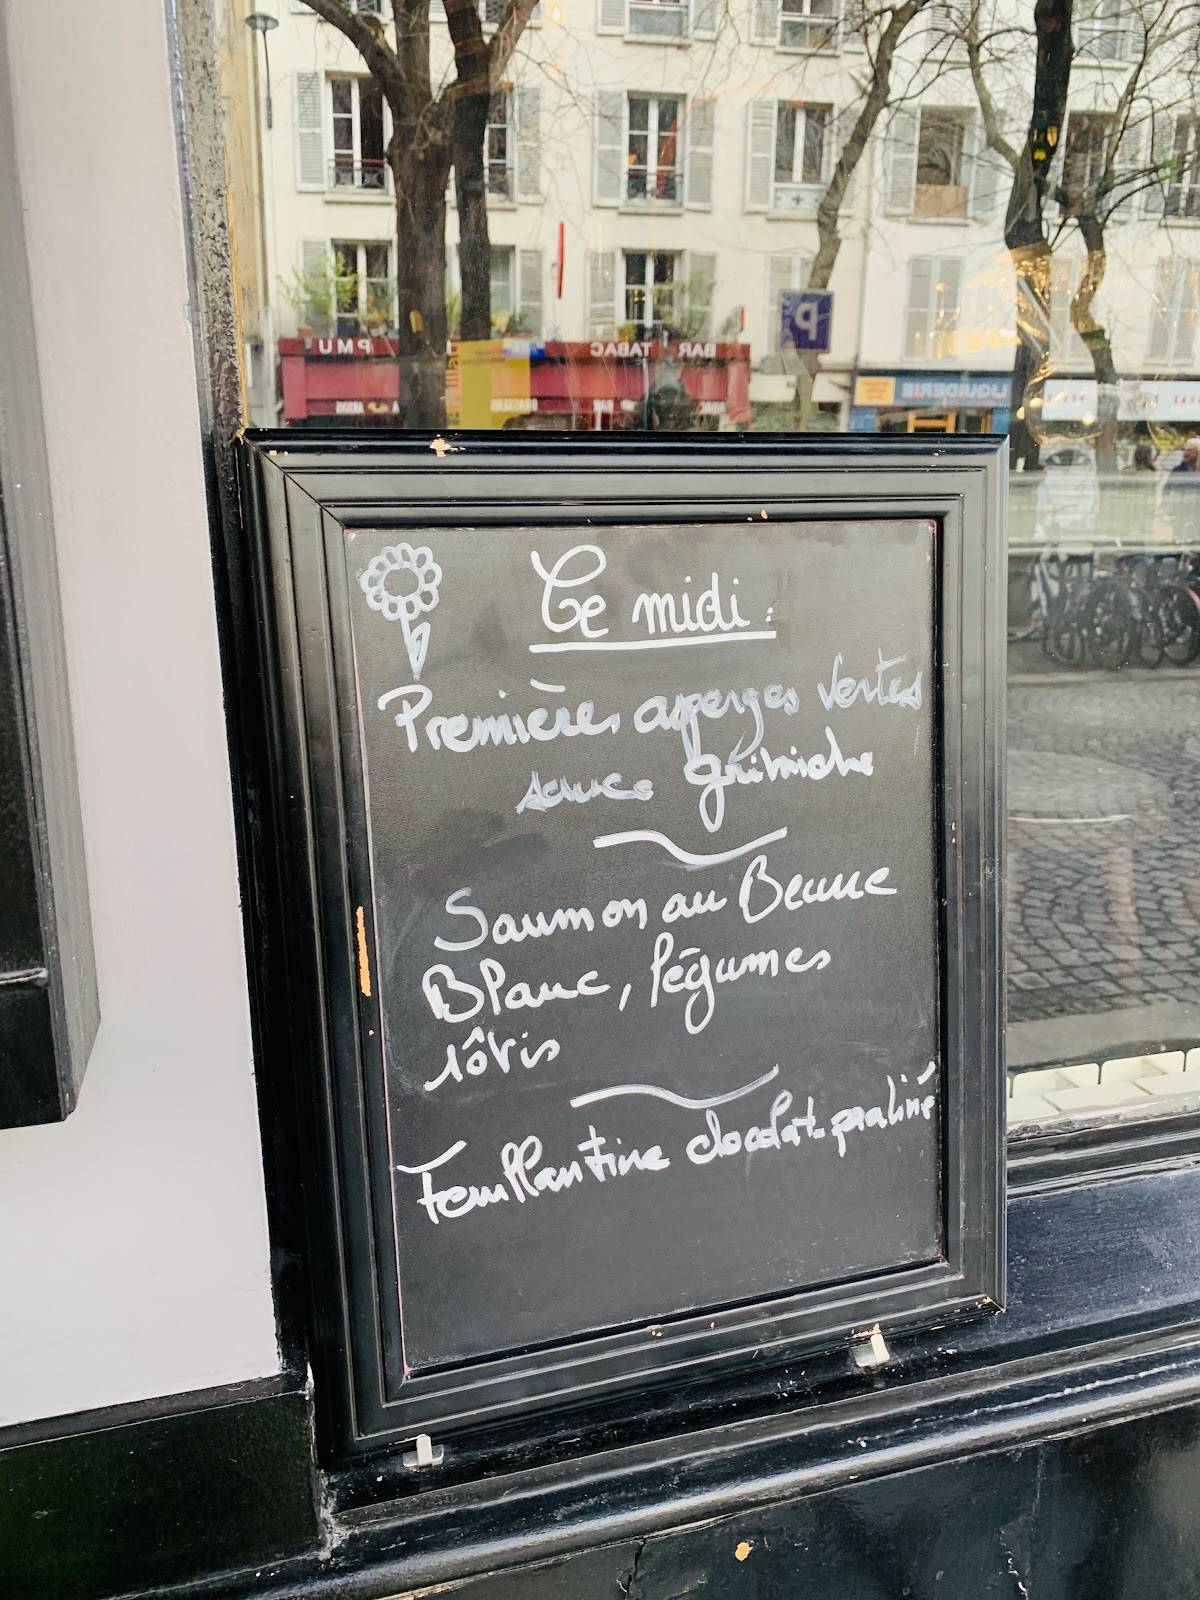 PMU
BAR TABAC
P
LIQUIDERIE
Ce midi :
Premières asperges vertes
sauce gribiche
Saumon au Beurre
Blanc, légumes
rôtis
Feuillantine chocolat-praliné